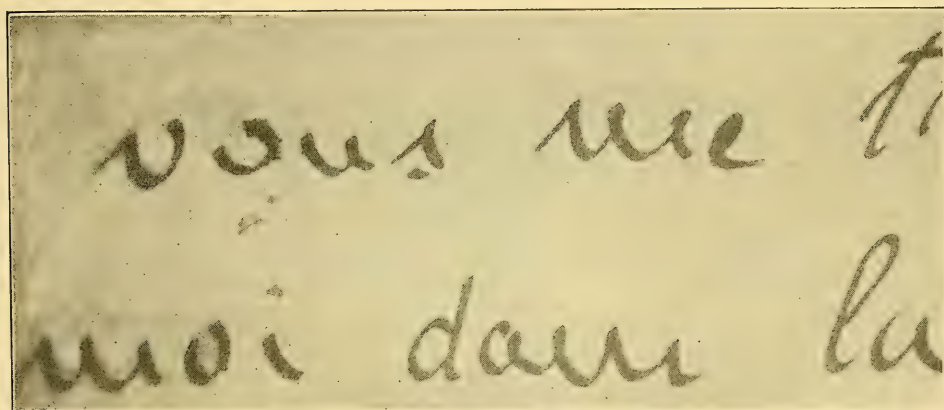 vous me
moi dans